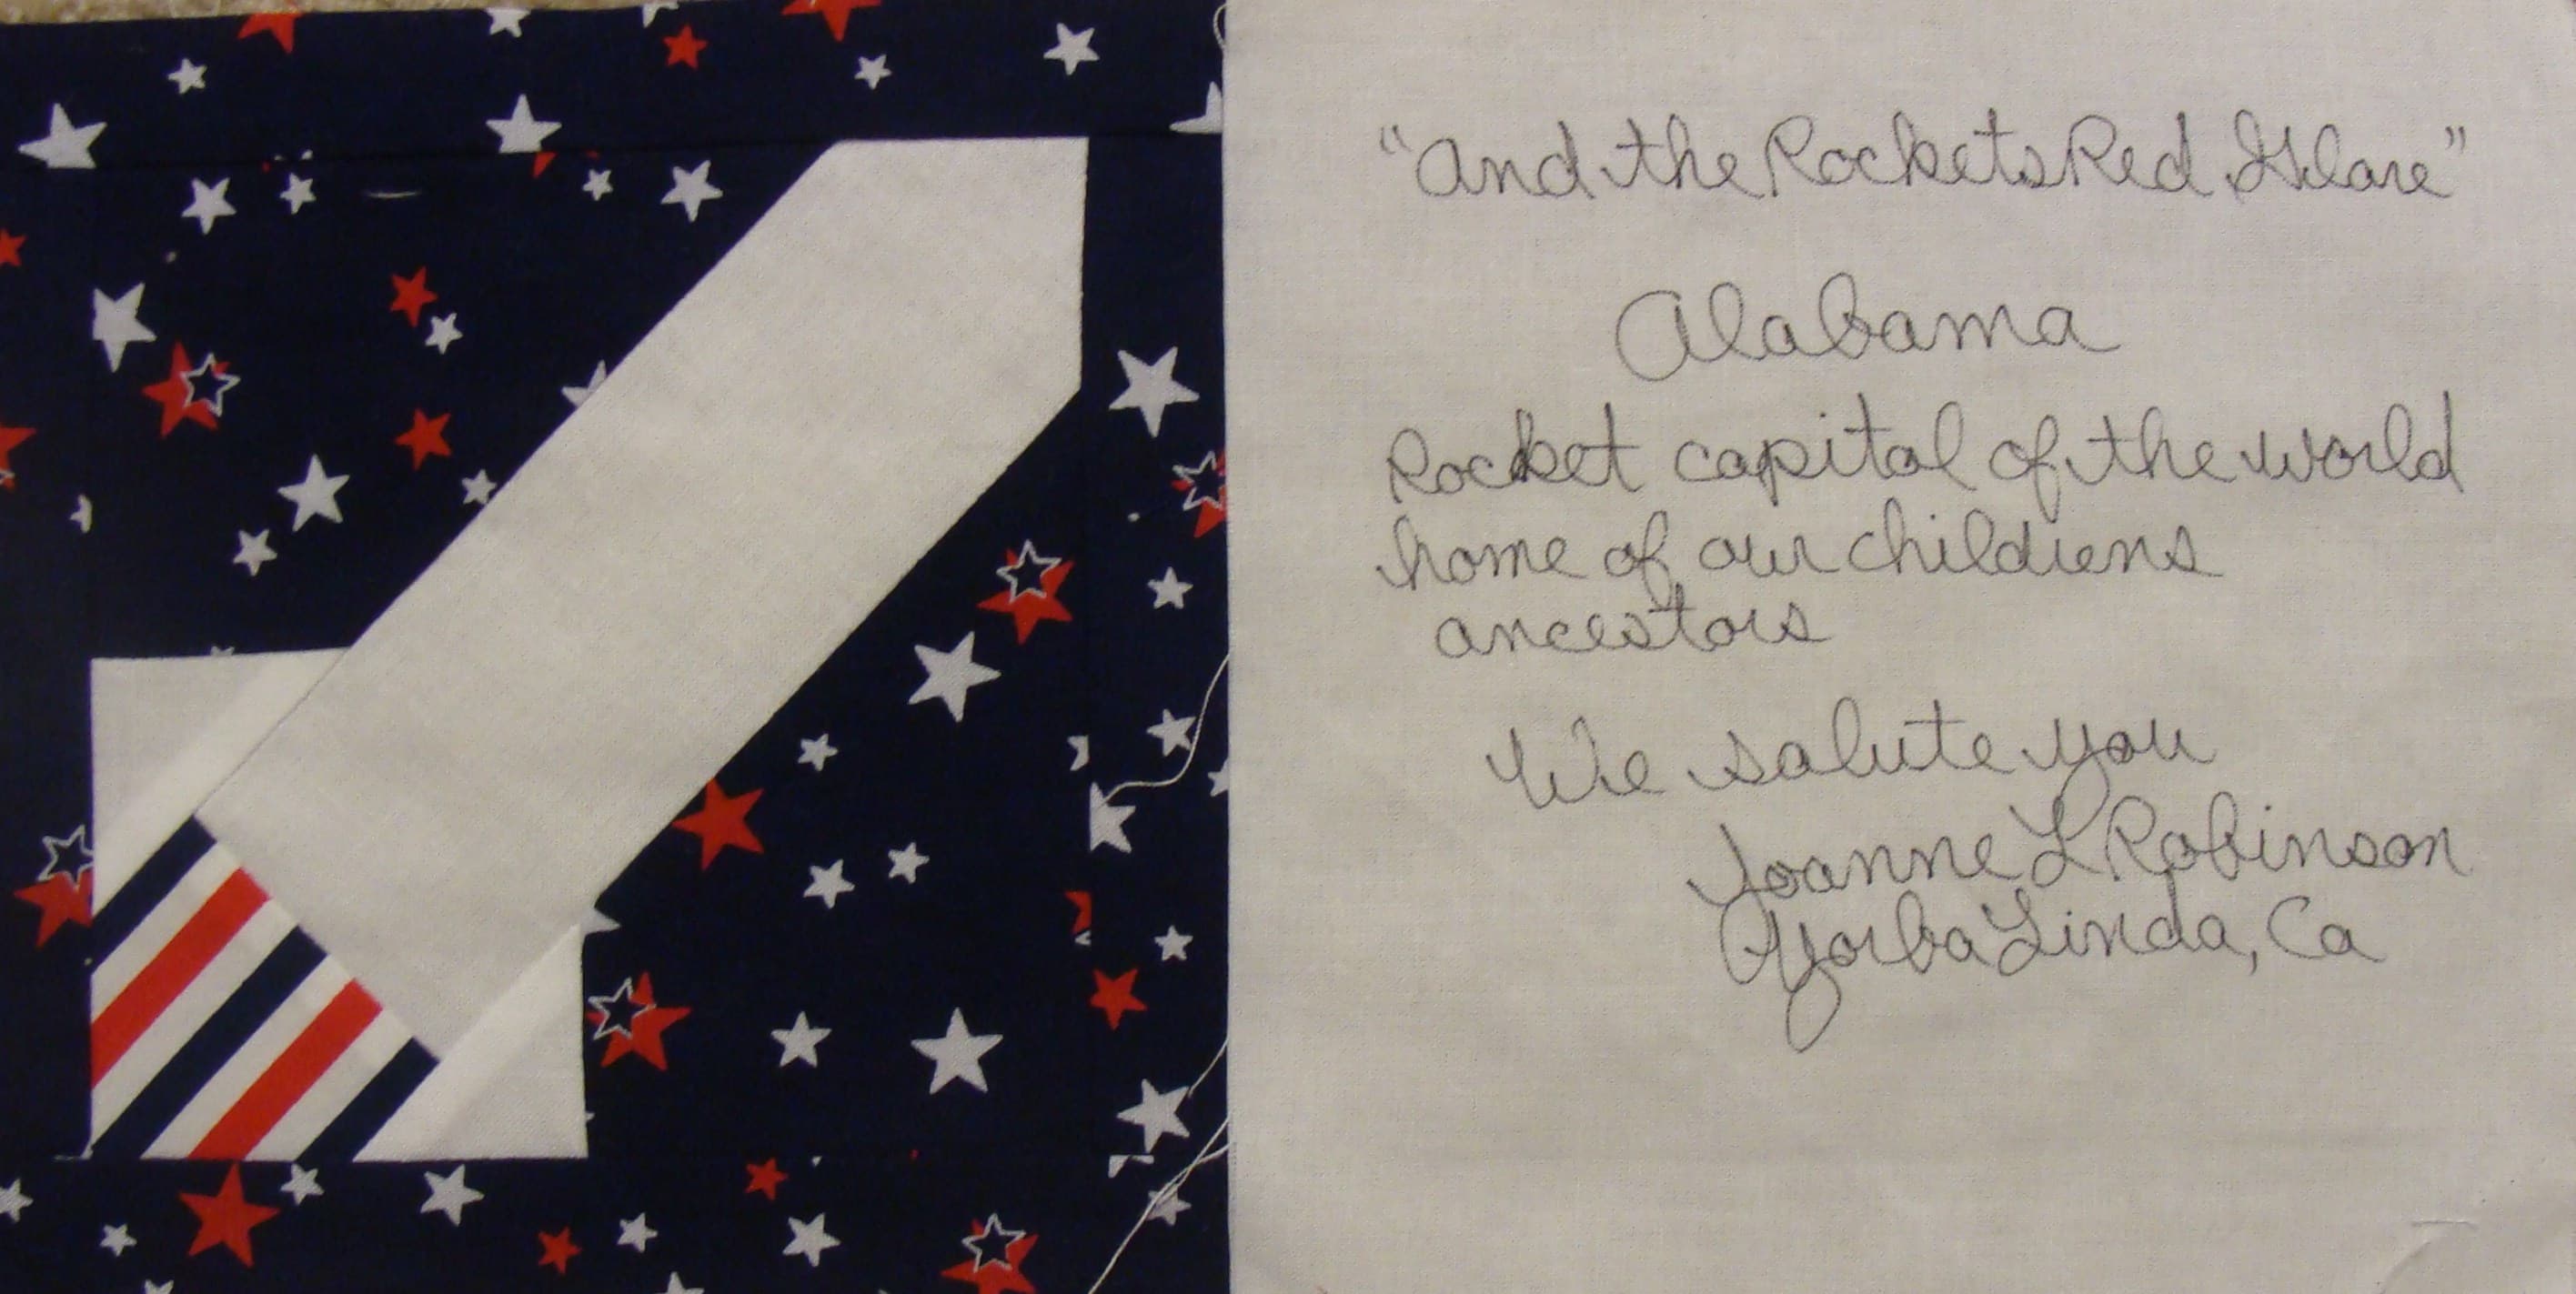 "And the Rockets Red Glare"
Alabama
Rocket capital of the world
home of our childrens
ancestors
We salute you
Joanne L Robinson
Yorba Linda, Ca